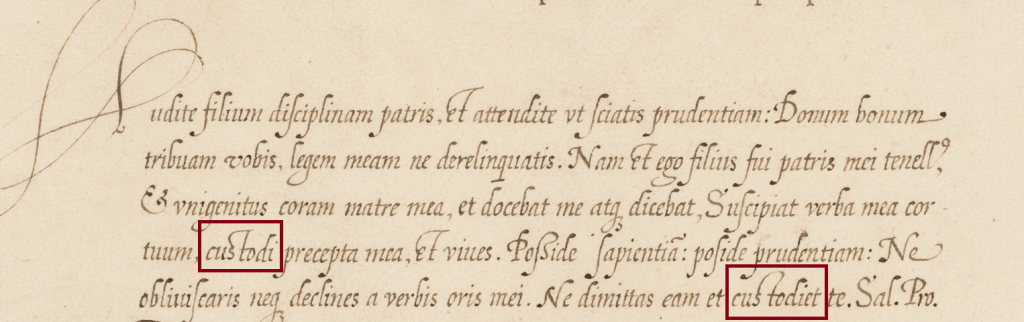 Audite filium disciplinam patris, et attendite vt sciatis prudentiam: Donum bonum
tribuam vobis, legem meam ne derelinquatis. Nam et ego filius fui patris mei tenell9,
& vnigenitus coram matre mea, et docebat me atq; dicebat, Suscipiat verba mea cor
tuum, custodi precepta mea, et viues. Posside sapientiã: poside prudentiam: Ne
obliuiscaris neq; declines a verbis oris mei. Ne dimittas eam et custodiet te. Sal. Pro.